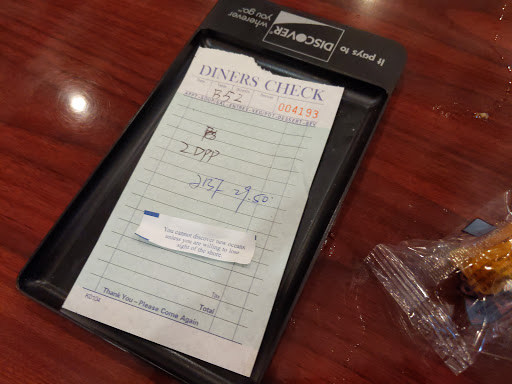 It pays to
DISCOVER®
wherever
you go.™
DINERS CHECK
B52
004193
2 DPP
29.50
You cannot discover new oceans
unless you are willing to lose
sight of the shore.
Tax
Total
Thank You – Please Come Again